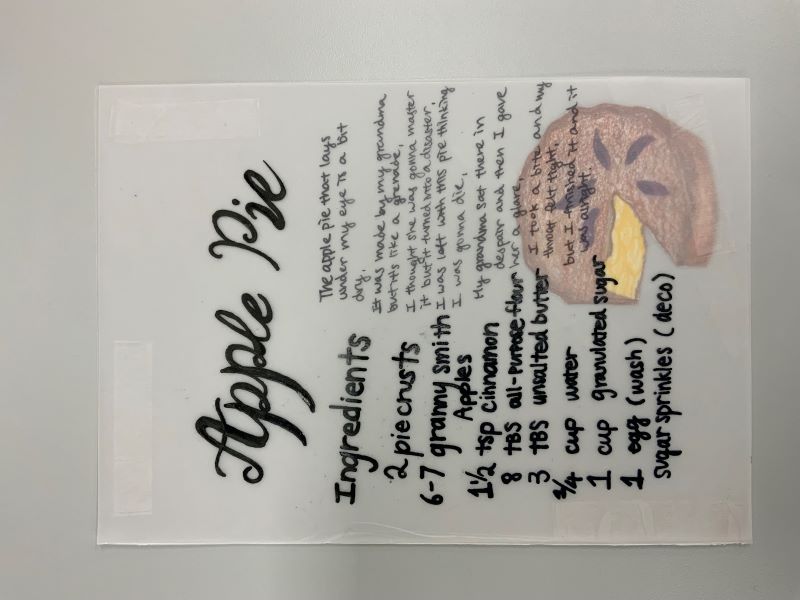 Apple Pie
Ingredients
2 piecrusts
6-7 granny smith
Apples
1½ tsp cinnamon
8 TBS all-purpose flour
3 TBS unsalted butter
3/4 cup water
1 cup granulated sugar
1 egg (wash)
sugar sprinkles (deco)
The apple pie that lays
under my eye is a bit
dry,
It was made by my grandma
but it's like a grenade,
I thought she was gonna master
it but it turned into a disaster,
I was left with this pie thinking
I was gonna die,
My grandma sat there in
despair and then I gave
her a glare,
I took a bite and my
throat felt tight,
but I finished it and it
was alright.